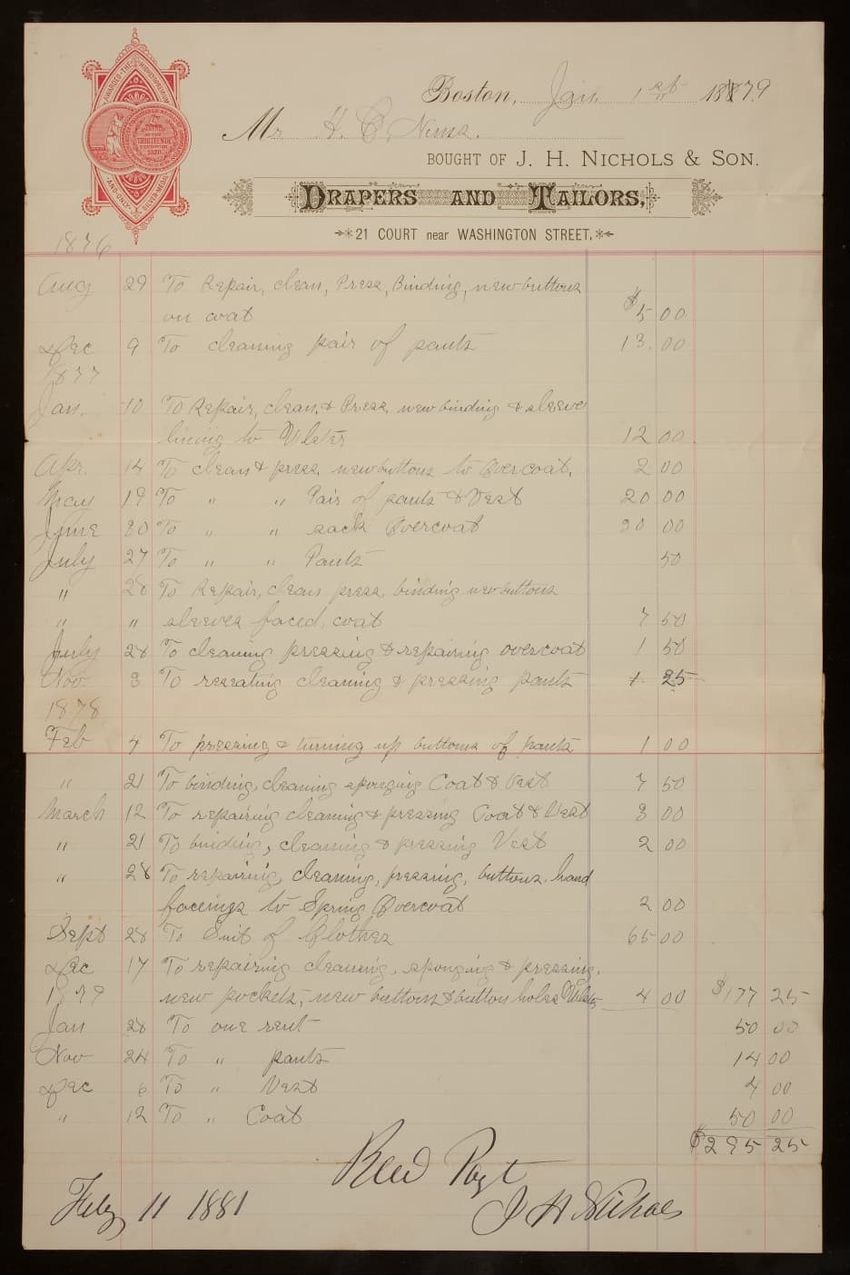 Boston, Jan 1st 1879
Mr H. C. Nims.
BOUGHT OF J. H. NICHOLS & SON.
DRAPERS AND TAILORS,
21 COURT near WASHINGTON STREET,
1876
Aug 29 To Repair, clean, Press, Binding, new buttons
on coat $5 00
Dec 9 To cleaning pair of pants 13.00
1877
Jan. 10 To Repair, clean, & Press, new binding & sleeve
lining to Ulster 12 00
Apr. 14 To clean & press, new buttons to Overcoat, 2 00
May 19 To " " Pair of pants & Vest 20 00
June 30 To " " sack Overcoat 30 00
July 27 To " " Pants 50
" 28 To Repair, clean press, binding new buttons
" " sleeves faced, coat 7 50
July 28 To cleaning pressing & repairing overcoat 1 50
Nov 3 To reseating cleaning & pressing pants 1. 25
1878
Feb 4 To pressing & turning up buttoms of pants 1 00
" 21 To binding, cleaning sponging Coat & Vest 7 50
March 12 To repairing cleaning & pressing Coat & Vest 3 00
" 21 To binding, cleaning & pressing Vest 2 00
" 28 To repairing, cleaning, pressing, buttons, hand
facings to Spring Overcoat 2 00
Sept 28 To Suit of Clothes 65 00
Dec 17 To repairing cleaning, sponging & pressing,
1879 new pockets, new buttons & button holes Ulster 4 00 $177 25
Jan 28 To one rent 50 00
Nov 24 To " pants 14 00
Dec 6 To " Vest 4 00
" 12 To " Coat 50 00
$295 25
Recd Payt
Feby 11 1881 J H Nichols